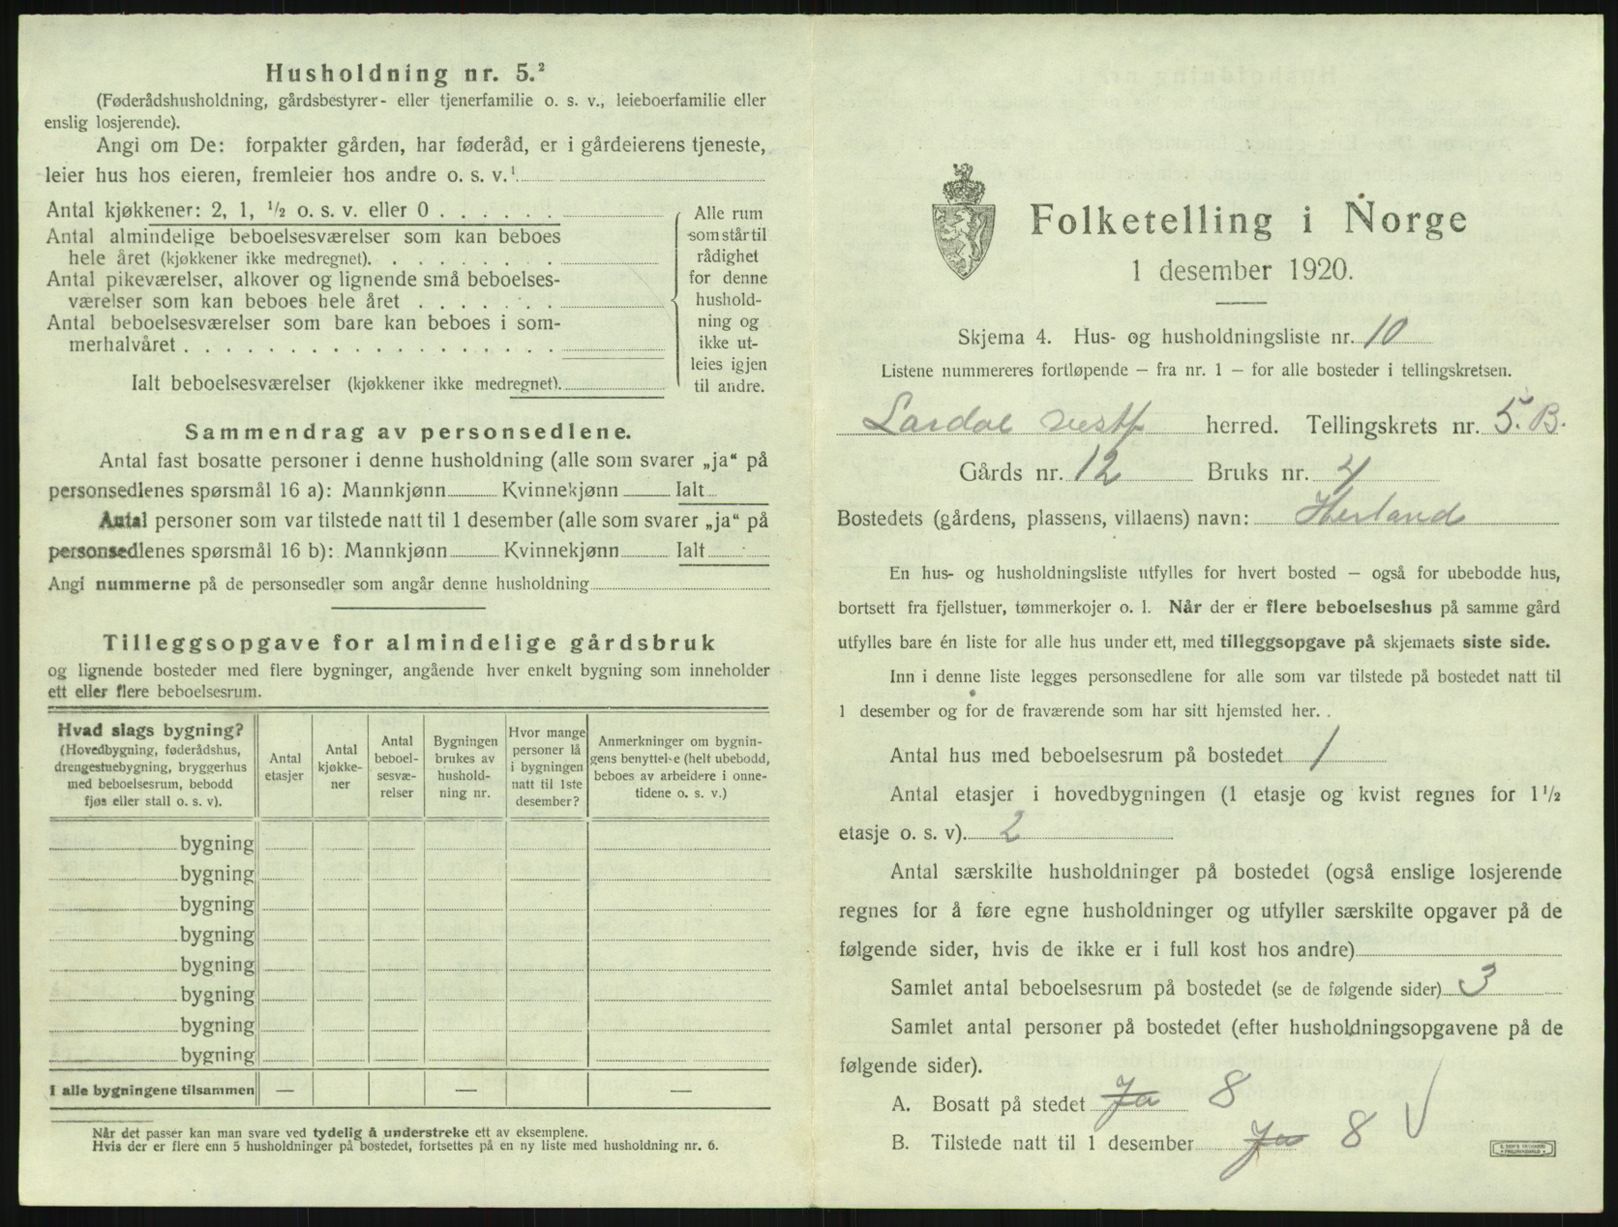 Husholdning nr. 5.²
(Føderådshusholdning, gårdsbestyrer- eller tjenerfamilie o. s. v., leieboerfamilie eller
enslig losjerende).
Angi om De: forpakter gården, har føderåd, er i gårdeierens tjeneste,
leier hus hos eieren, fremleier hos andre o. s. v.¹
Antal kjøkkener: 2, 1, ¹/₂ o. s. v. eller 0 . . . . . .
Antal almindelige beboelsesværelser som kan beboes
hele året (kjøkkener ikke medregnet). . . . . . . .
Antal pikeværelser, alkover og lignende små beboelses-
værelser som kan beboes hele året . . . . . . .
Antal beboelsesværelser som bare kan beboes i som-
merhalvåret . . . . . . . . . . . . . . . . . .
Ialt beboelsesværelser (kjøkkener ikke medregnet).
Alle rum
som står til
rådighet
for denne
hushold-
ning og
ikke ut-
leies igjen
til andre.
Sammendrag av personsedlene.
Antal fast bosatte personer i denne husholdning (alle som svarer „ja“ på
personsedlenes spørsmål 16 a): Mannkjønn Kvinnekjønn Ialt
Antal personer som var tilstede natt til 1 desember (alle som svarer „ja“ på
personsedlenes spørsmål 16 b): Mannkjønn Kvinnekjønn Ialt
Angi nummerne på de personsedler som angår denne husholdning
Tilleggsopgave for almindelige gårdsbruk
og lignende bosteder med flere bygninger, angående hver enkelt bygning som inneholder
ett eller flere beboelsesrum.
Hvad slags bygning?
(Hovedbygning, føderådshus,
drengestuebygning, bryggerhus
med beboelsesrum, bebodd
fjøs eller stall o. s. v).
Antal
etasjer
Antal
kjøkke-
ner
Antal
beboel-
sesvæ-
relser
Bygningen
brukes av
hushold-
ning nr.
Hvor mange
personer lå
i bygningen
natt til 1ste
desember?
Anmerkninger om bygnin-
gens benyttelse (helt ubebodd,
beboes av arbeidere i onne-
tidene o. s. v.)
bygning
bygning
bygning
bygning
bygning
bygning
bygning
bygning
I alle bygningene tilsammen — — —
Når det passer kan man svare ved tydelig å understreke ett av eksemplene.
Hvis der er flere enn 5 husholdninger på bostedet, fortsettes på en ny liste med husholdning nr. 6.
Folketelling i Norge
1 desember 1920.
Skjema 4. Hus- og husholdningsliste nr. 10
Listene nummereres fortløpende — fra nr. 1 — for alle bosteder i tellingskretsen.
Lardal vestf herred. Tellingskrets nr. 5. B.
Gårds nr. 12 Bruks nr. 4
Bostedets (gårdens, plassens, villaens) navn: Herland
En hus- og husholdningsliste utfylles for hvert bosted — også for ubebodde hus,
bortsett fra fjellstuer, tømmerkojer o. l. Når der er flere beboelseshus på samme gård
utfylles bare én liste for alle hus under ett, med tilleggsopgave på skjemaets siste side.
Inn i denne liste legges personsedlene for alle som var tilstede på bostedet natt til
1 desember og for de fraværende som har sitt hjemsted her.
Antal hus med beboelsesrum på bostedet 1
Antal etasjer i hovedbygningen (1 etasje og kvist regnes for 1¹/₂
etasje o. s. v). 2
Antal særskilte husholdninger på bostedet (også enslige losjerende
regnes for å føre egne husholdninger og utfyller særskilte opgaver på de
følgende sider, hvis de ikke er i full kost hos andre)
Samlet antal beboelsesrum på bostedet (se de følgende sider) 3
Samlet antal personer på bostedet (efter husholdningsopgavene på de
følgende sider).
A. Bosatt på stedet Ja 8
B. Tilstede natt til 1 desember Ja 8